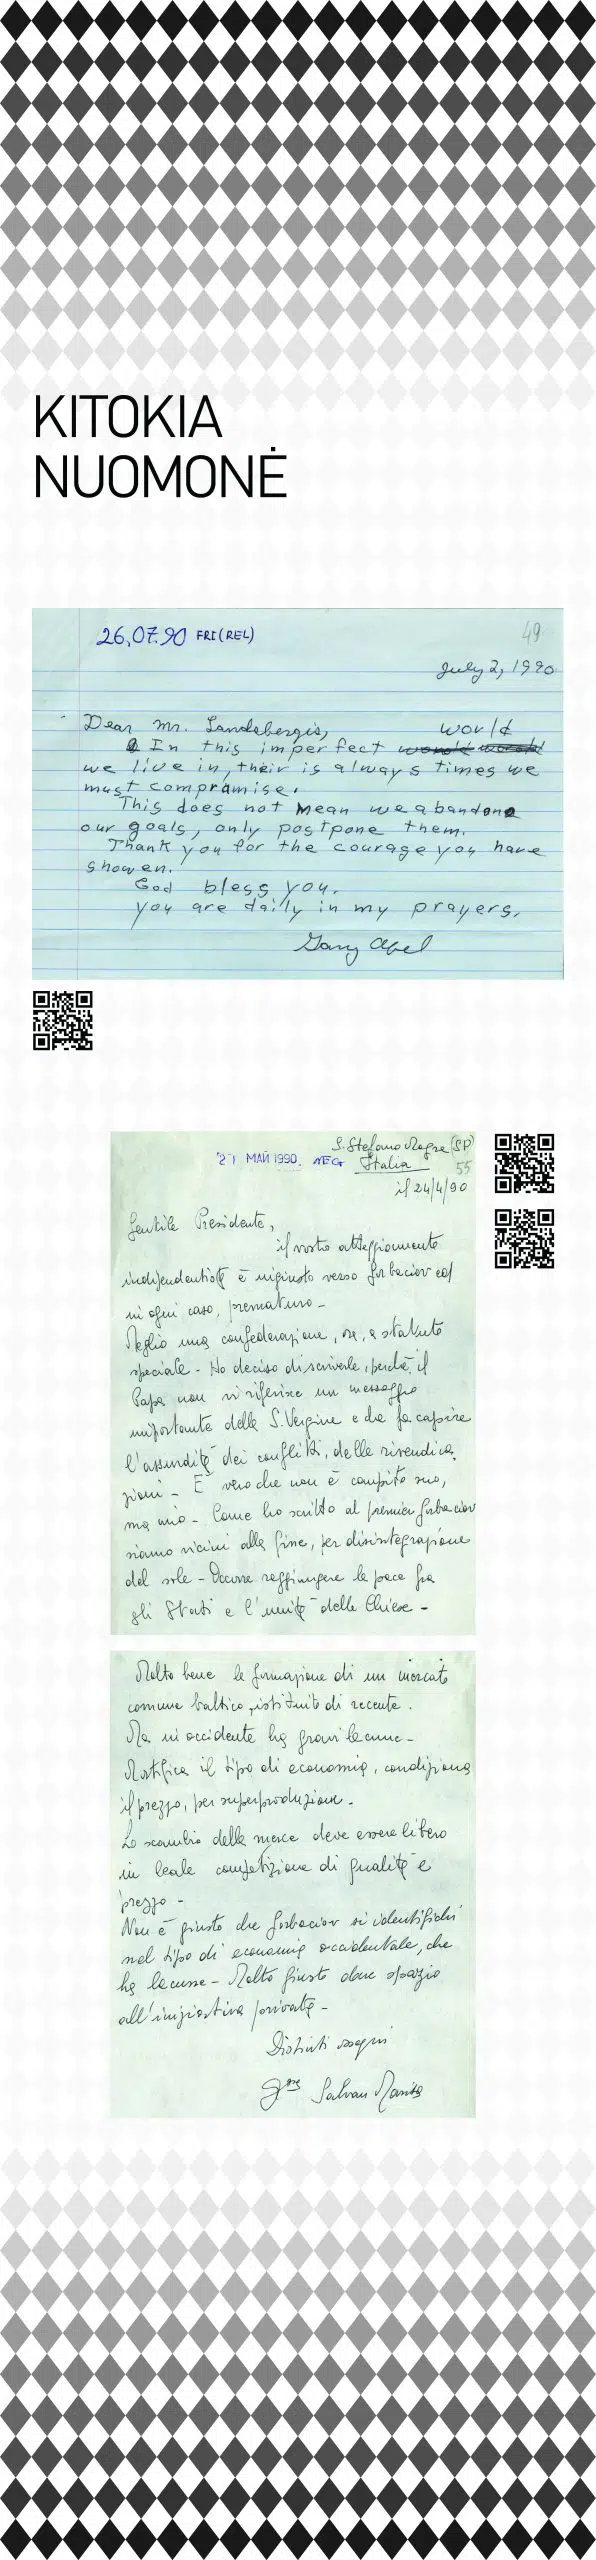 KITOKIA
NUOMONĖ
26,07.90 FRI(REL)
49
July 2, 1990
Dear Mr. Landsbergis,
world
In this imperfect
we live in, their is always times we
must compramise.
This does not mean we abandone
our goals, only postpone them.
Thank you for the courage you have
showen.
God bless you.
you are daily in my prayers.
Gary Abel
S. Stefano Magra (SP)
21 МАЙ 1990. NEG Italia
55
il 24/4/90
Gentile Presidente,
il vostro atteggiamento
indipendentista è ingiusto verso Gorbaciov ed
in ogni caso, prematuro -
Meglio una confederazione, o a statuto
speciale - Ho deciso di scriverle, perché il
Papa non vi riferisce un messaggio
importante della S. Vergine e che fa capire
l'assurdità dei conflitti, delle rivendica
zioni - E' vero che non è compito suo,
ma mio - Come ho scritto al premier Gorbaciov
siamo vicini alla fine, per disintegrazione
del sole - Occorre raggiungere la pace fra
gli Stati e l'unità delle Chiese -
Molto bene la formazione di un mercato
comune baltico, istituito di recente.
Ma in occidente ha gravi lacune -
Mortifica il tipo di economia, condiziona
il prezzo, per superproduzione.
Lo scambio della merce deve essere libero
in leale competizione di qualità e
prezzo -
Non è giusto che Gorbaciov si identifichi
nel tipo di economia occidentale, che
ha lacune - Molto giusto dare spazio
all'iniziativa privata -
Distinti ossequi
Salvan Marisa